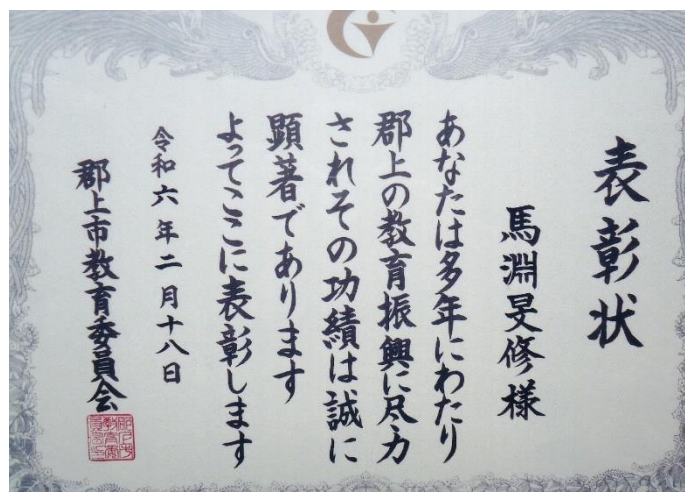 表彰状
馬淵旻修様
あなたは多年にわたり
郡上の教育振興に尽力
されその功績は誠に
顕著であります
よってここに表彰します
令和六年二月十八日
郡上市教育委員会